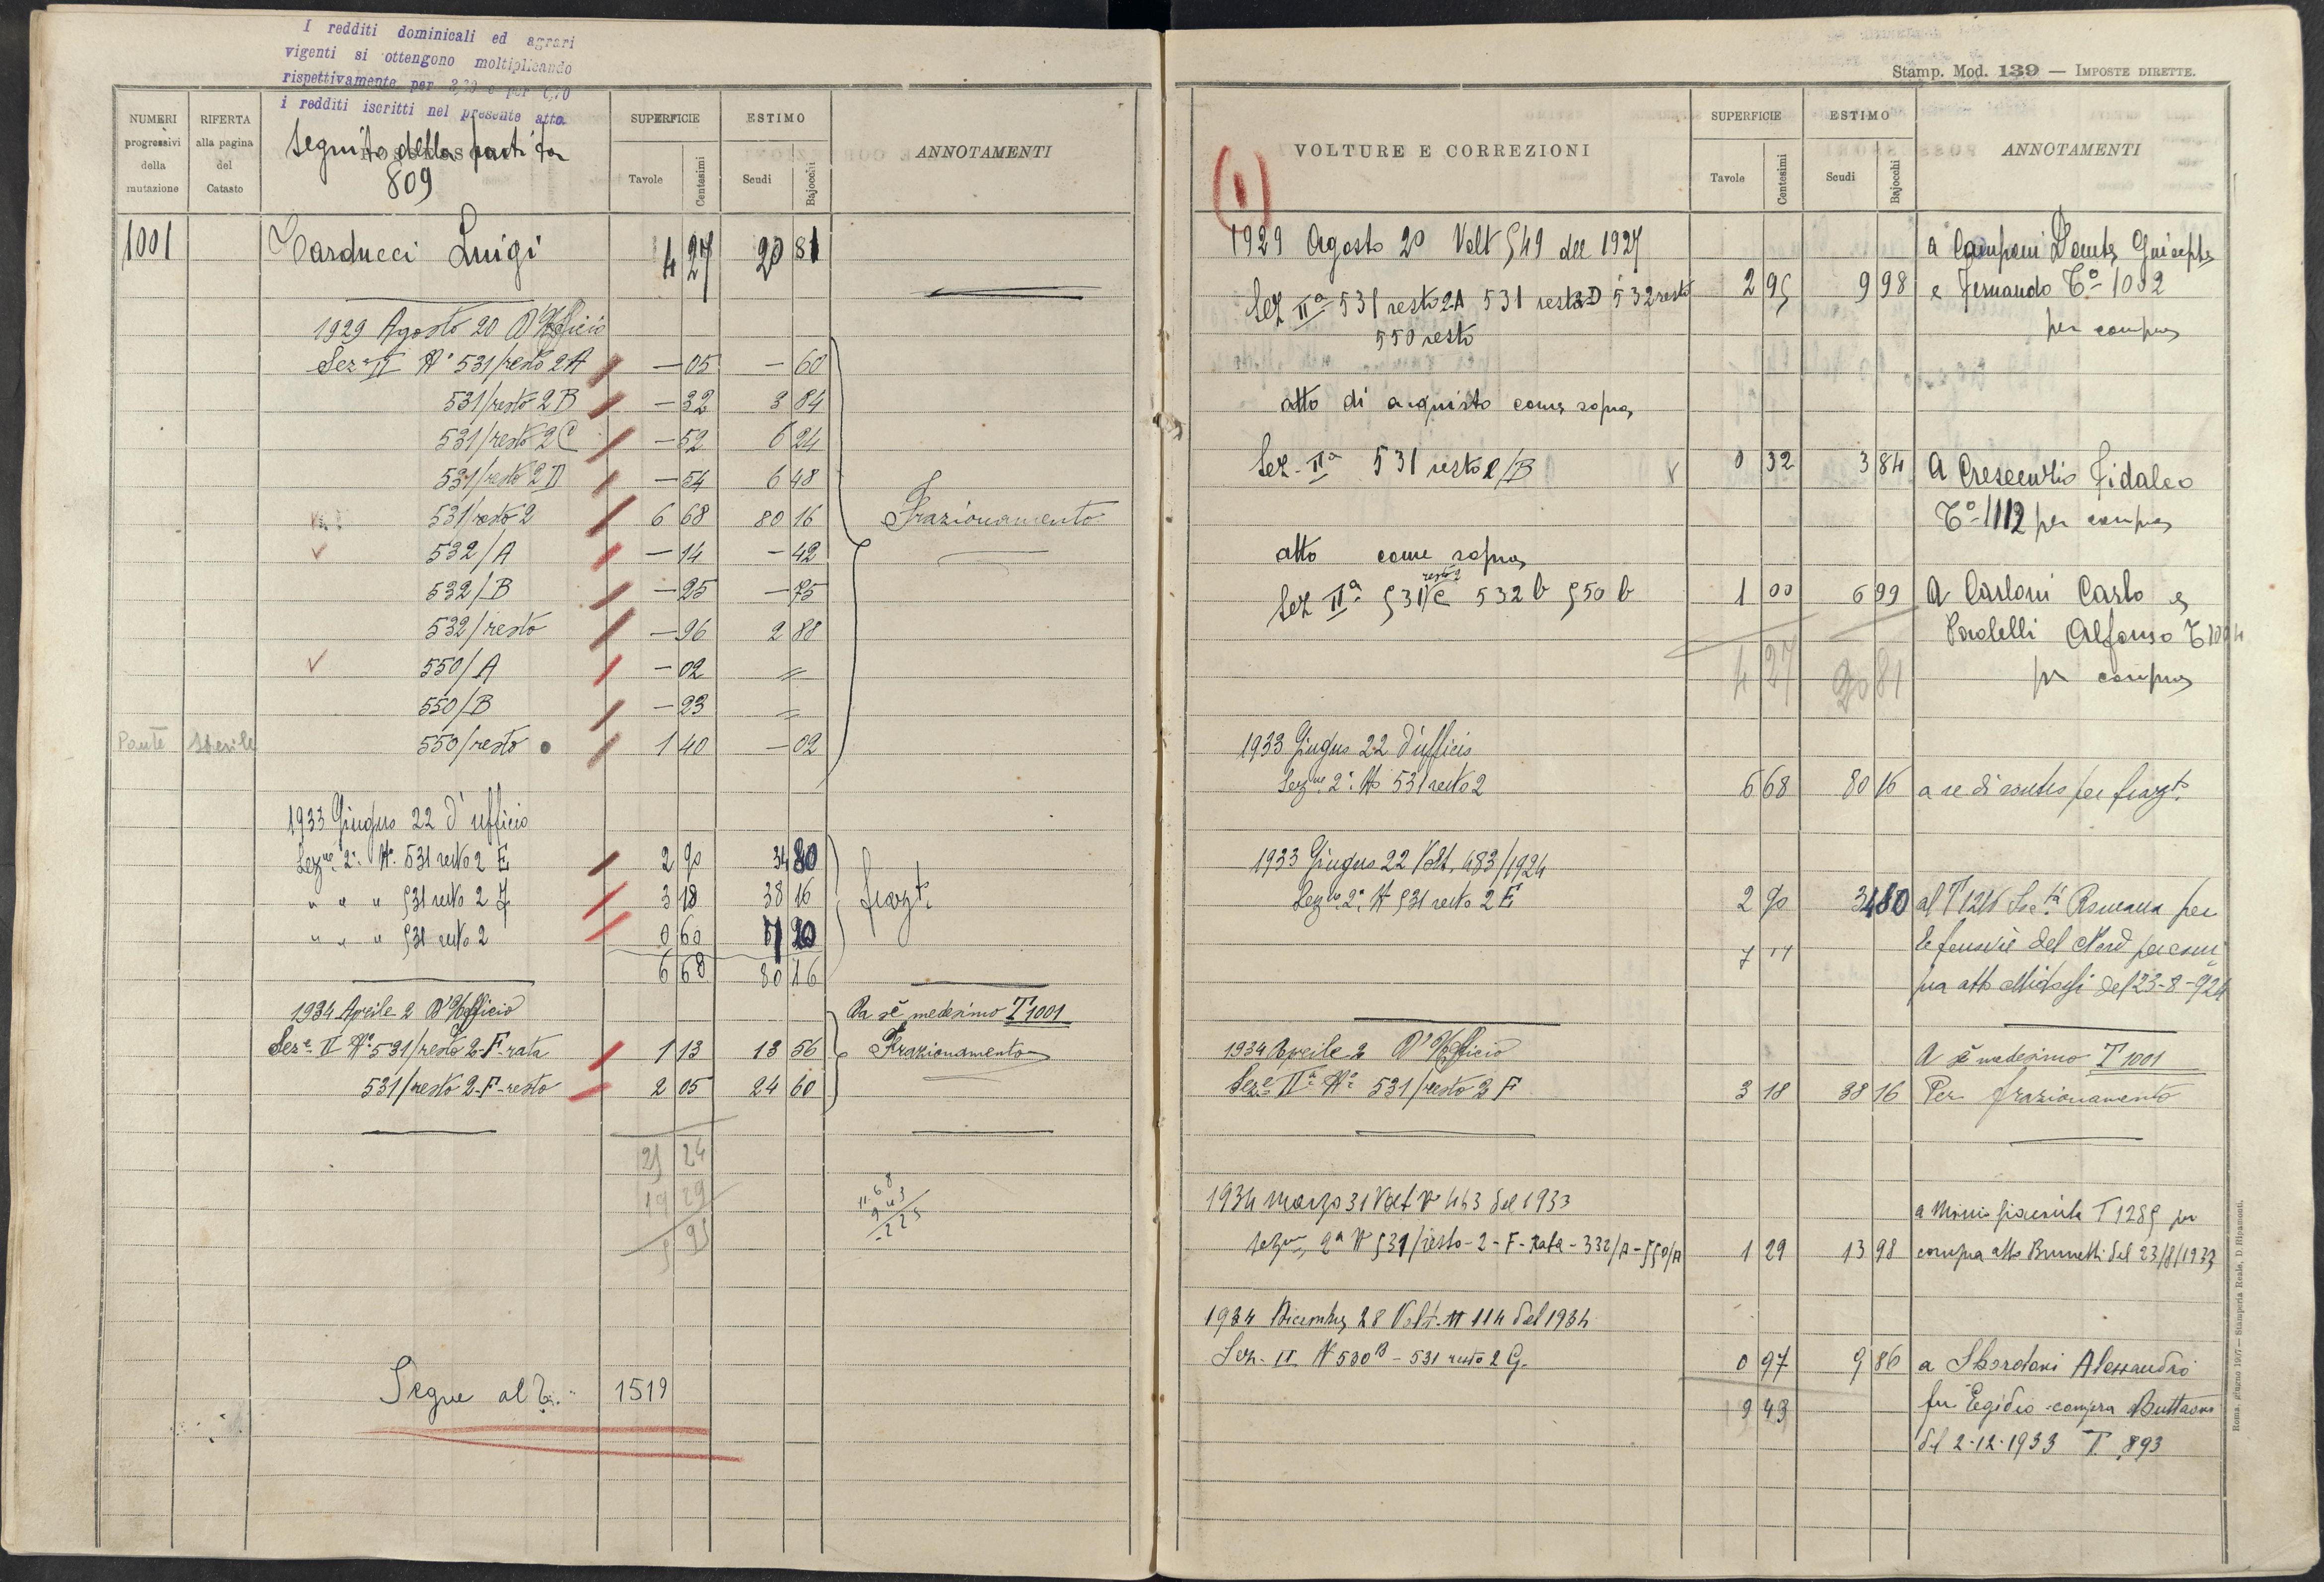 I redditi dominicali ed agrari
vigenti si ottengono moltiplicando
rispettivamente per e per
i redditi iscritti nel presente atto.
NUMERI progressivi della mutazione
RIFERTA alla pagina del Catasto
Seguito della partita
809
SUPERFICIE
Tavole Centesimi
ESTIMO
Scudi Bajocchi
ANNOTAMENTI
1001 Carducci Luigi 4 27 20 81
1929 Agosto 20 D'Ufficio
Sez. II N° 531/resto 2A — 05 — 60
531/resto 2B — 32 3 84
531/resto 2C — 52 6 24
531/resto 2D — 54 6 48
531/resto 2 6 68 80 16 Frazionamento
532/A — 14 — 42
532/B — 25 — 75
532/resto — 96 2 88
550/A — 02 =
550/B — 23 =
550/resto 1 40 — 02
1933 Giugno 22 d'ufficio
Sezne 2a N° 531 resto 2 E 2 90 34 80
" " " 531 resto 2 F 3 18 38 16 frazto
" " " 531 resto 2 0 60 7 20
6 68 80 16
1934 Aprile 2 D'Ufficio Da sè medesimo T 1001
Seze II N° 531/resto 2-F-rata 1 13 13 56 Frazionamento
531/resto 2-F-resto 2 05 24 60
24
19 29
11.68
9 43
2 25
Segue al T. 1519
Stamp. Mod. 139 — IMPOSTE DIRETTE.
VOLTURE E CORREZIONI
SUPERFICIE
Tavole Centesimi
ESTIMO
Scudi Bajocchi
ANNOTAMENTI
(1)
1929 Agosto 20 Volt 549 del 1927 a Camponi Dante, Giuseppe
Sez IIa 531 resto 2A 531 resto 2D 532 resto 2 95 9 98 e Fernando To 1092
550 resto per compra
atto di acquisto come sopra
Sez. IIa 531 resto 2/B 0 32 3 84 A Crescenzio Fidalco
To 1112 per compra
atto come sopra
Sez IIa 531 resto 2/C 532 b 550 b 1 00 6 99 A Carloni Carlo e
Paolelli Alfonso T 1094
4 27 20 81 per compra
1933 Giugno 22 d'ufficio
Sezne 2a No 531 resto 2 6 68 80 16 a se di contro per frazto.
1933 Giugno 22 Volt. 483/1924
Sezne 2a N 531 resto 2 E 2 90 34 80 al T 1216 Soctà Romana per
le ferrovie del Nord per com
pra atto del 23-8-924
1934 Aprile 2 D'Ufficio A sè medesimo T 1001
Seze IIa No 531/resto 2 F 3 18 38 16 Per frazionamento
1934 marzo 31 Volt No 443 del 1933 a T 1285 per
sezne 2a N 531/resto-2-F-rata-332/A-550/A 1 29 13 98 compra atto Brunetti del 23/8/1933
1934 Dicembre 28 Volt. N 114 del 1934
Sez. II N 530 B - 531 resto 2 G. 0 97 9 86 a Sbordoni Alessandro
9 43 fu Egidio - compra Buttaoni
del 2-12-1933 T. 893
Roma, giugno 1927 — Stamperia Reale, D. Ricamoni.